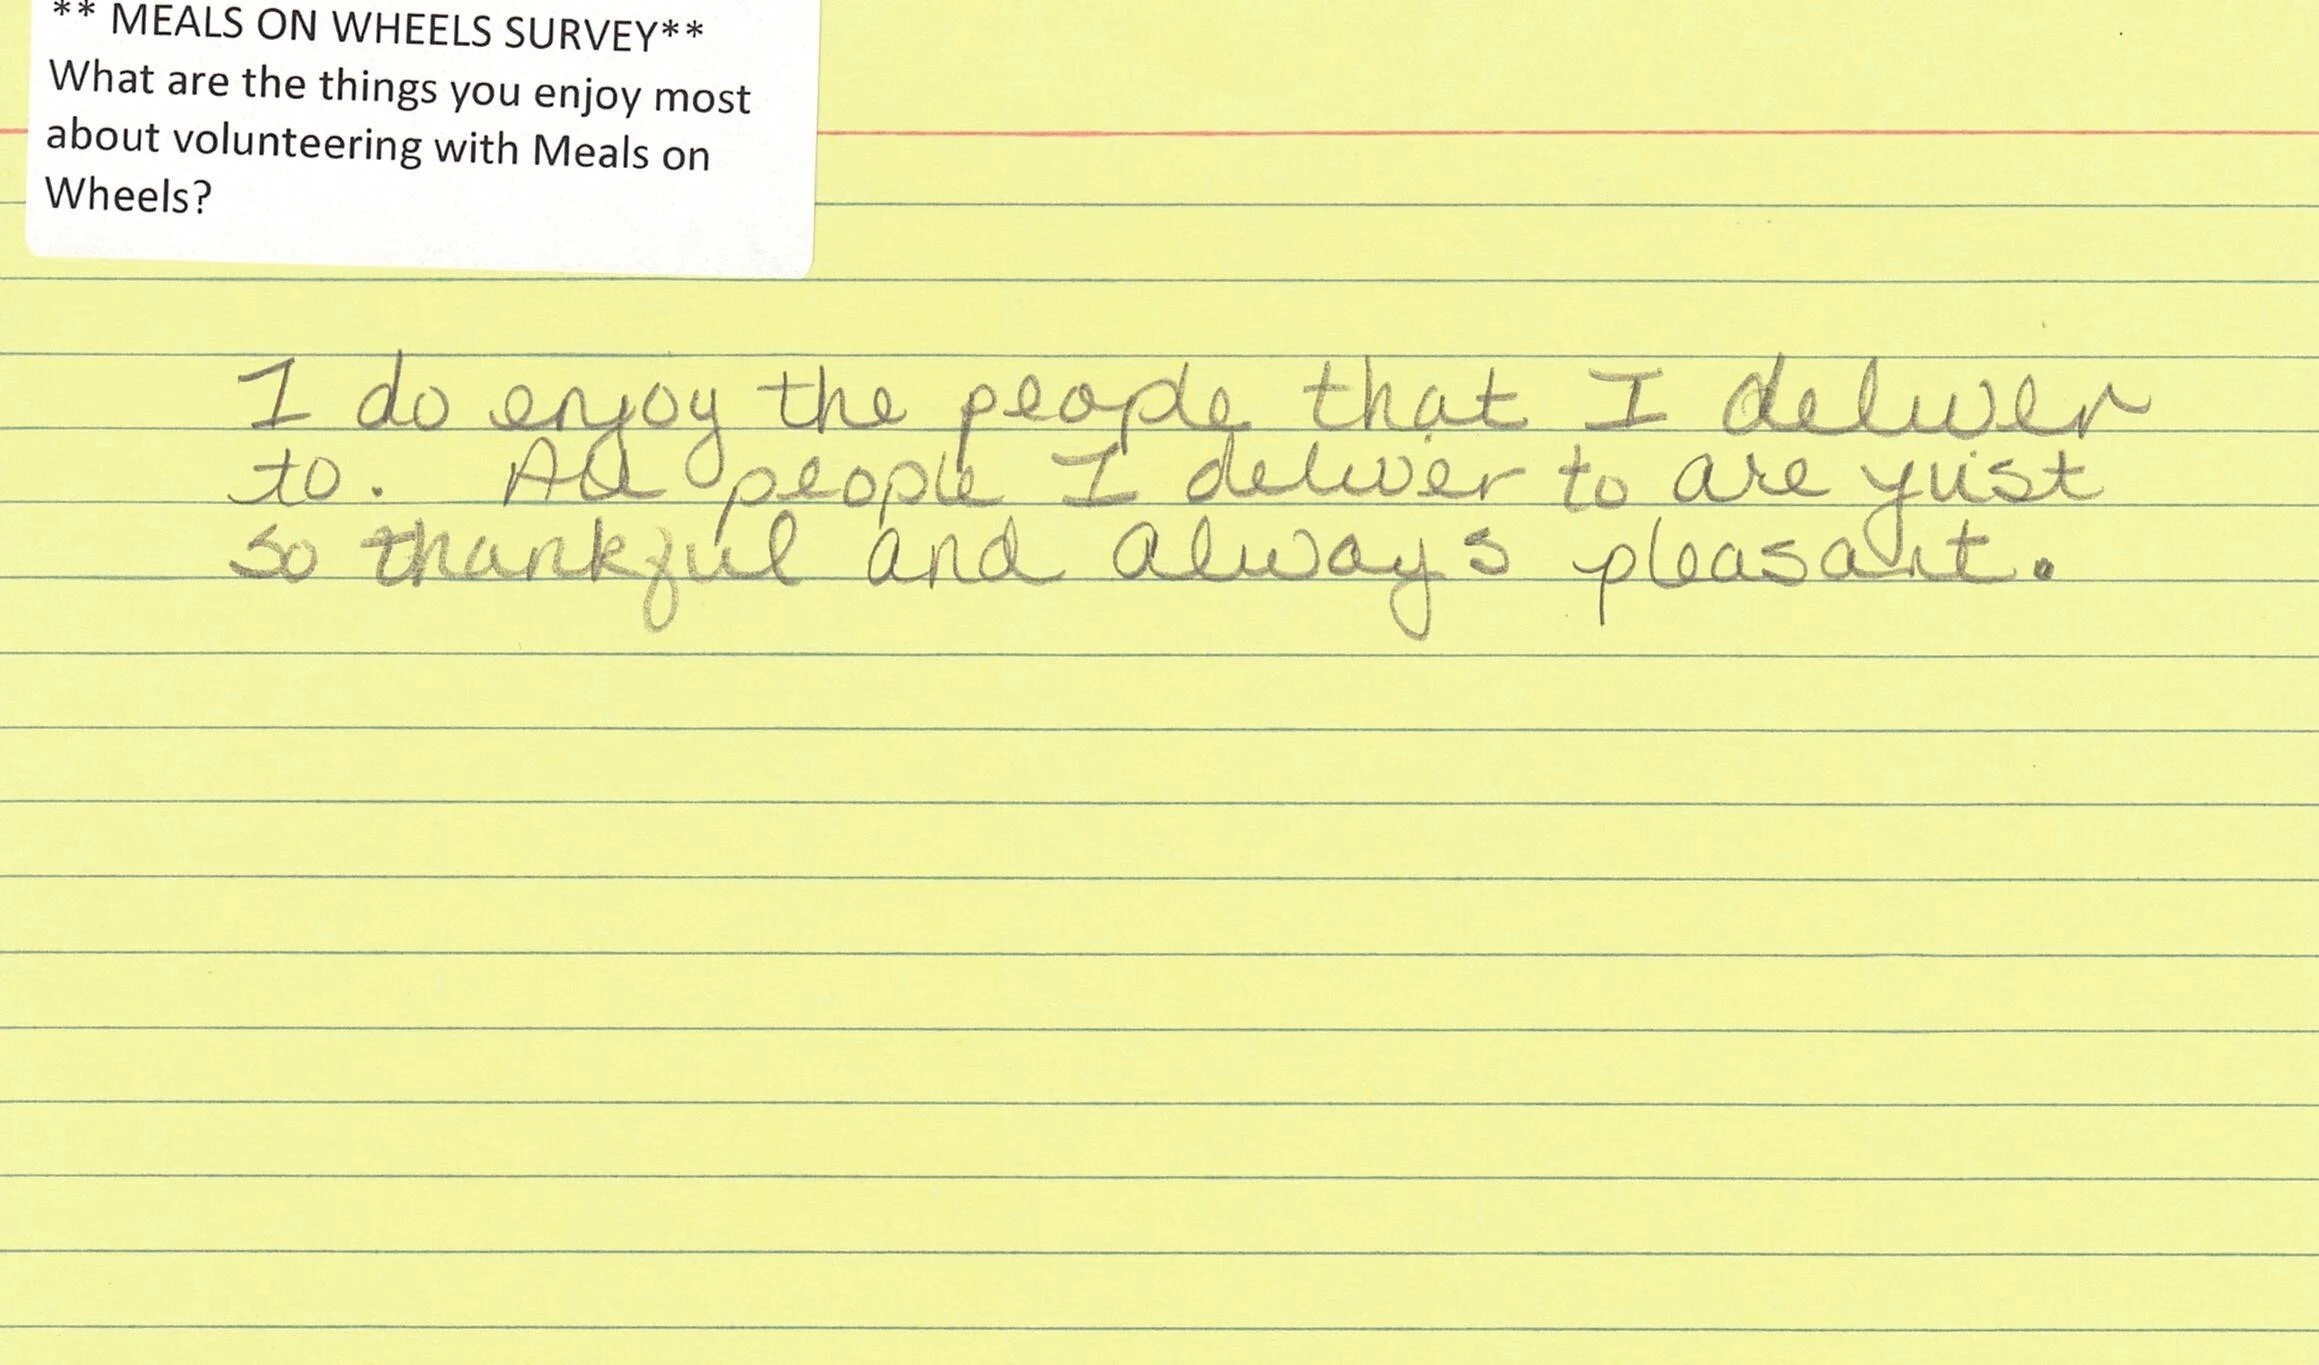 ** MEALS ON WHEELS SURVEY**
What are the things you enjoy most
about volunteering with Meals on
Wheels?
I do enjoy the people that I deliver
to. All people I deliver to are just
so thankful and always pleasant.